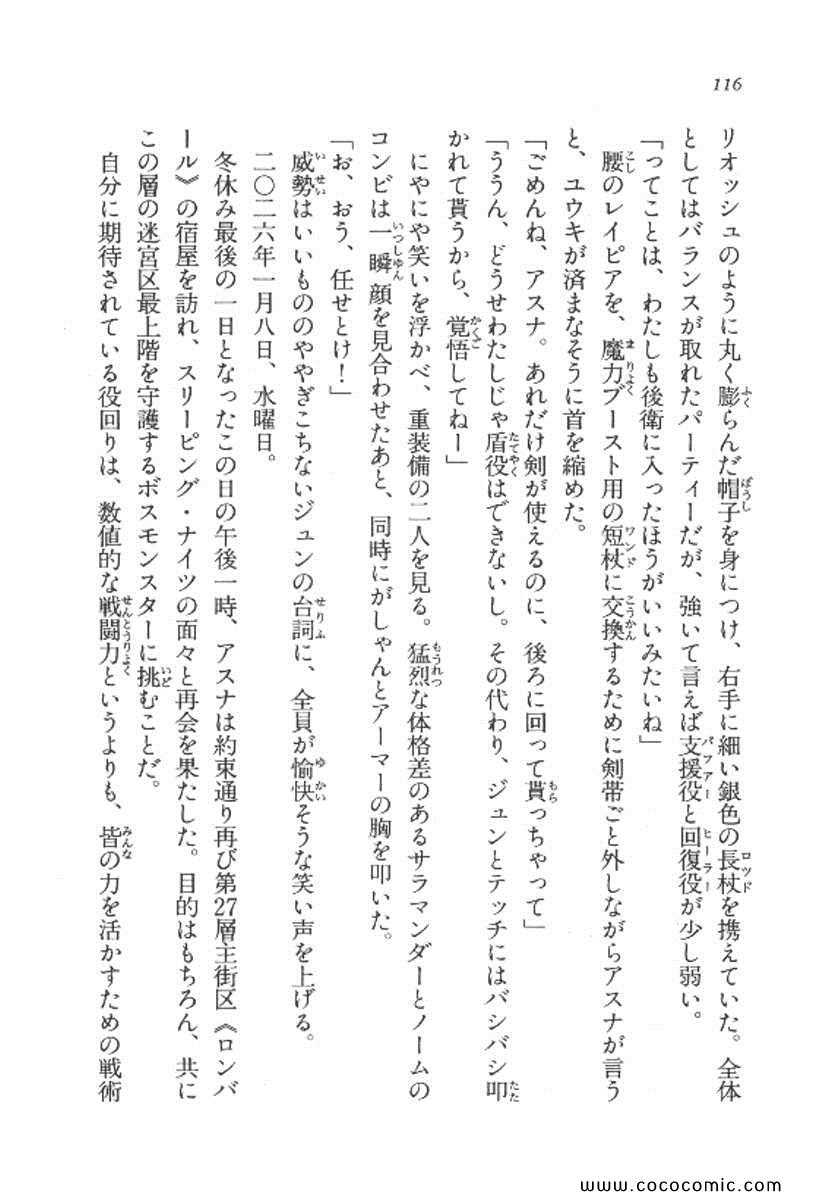 116
リオッシュのように丸く膨らんだ帽子を身につけ、右手に細い銀色の長杖を携えていた。全体
としてはバランスが取れたパーティーだが、強いて言えば支援役と回復役が少し弱い。
「ってことは、わたしも後衛に入ったほうがいいみたいね」
腰のレイピアを、魔力ブースト用の短杖に交換するために剣帯ごと外しながらアスナが言う
と、ユウキが済まなそうに首を縮めた。
「ごめんね、アスナ。あれだけ剣が使えるのに、後ろに回って貰っちゃって」
「ううん、どうせわたしじゃ盾役はできないし。その代わり、ジュンとテッチにはバシバシ叩
かれて貰うから、覚悟してねー」
にやにや笑いを浮かべ、重装備の二人を見る。猛烈な体格差のあるサラマンダーとノームの
コンビは一瞬顔を見合わせたあと、同時にがしゃんとアーマーの胸を叩いた。
「お、おう、任せとけ！」
威勢はいいもののややぎこちないジュンの台詞に、全員が愉快そうな笑い声を上げる。
二〇二六年一月八日、水曜日。
冬休み最後の一日となったこの日の午後一時、アスナは約束通り再び第27層主街区《ロンバ
ール》の宿屋を訪れ、スリーピング・ナイツの面々と再会を果たした。目的はもちろん、共に
この層の迷宮区最上階を守護するボスモンスターに挑むことだ。
自分に期待されている役回りは、数値的な戦闘力というよりも、皆の力を活かすための戦術
www.cococomic.com